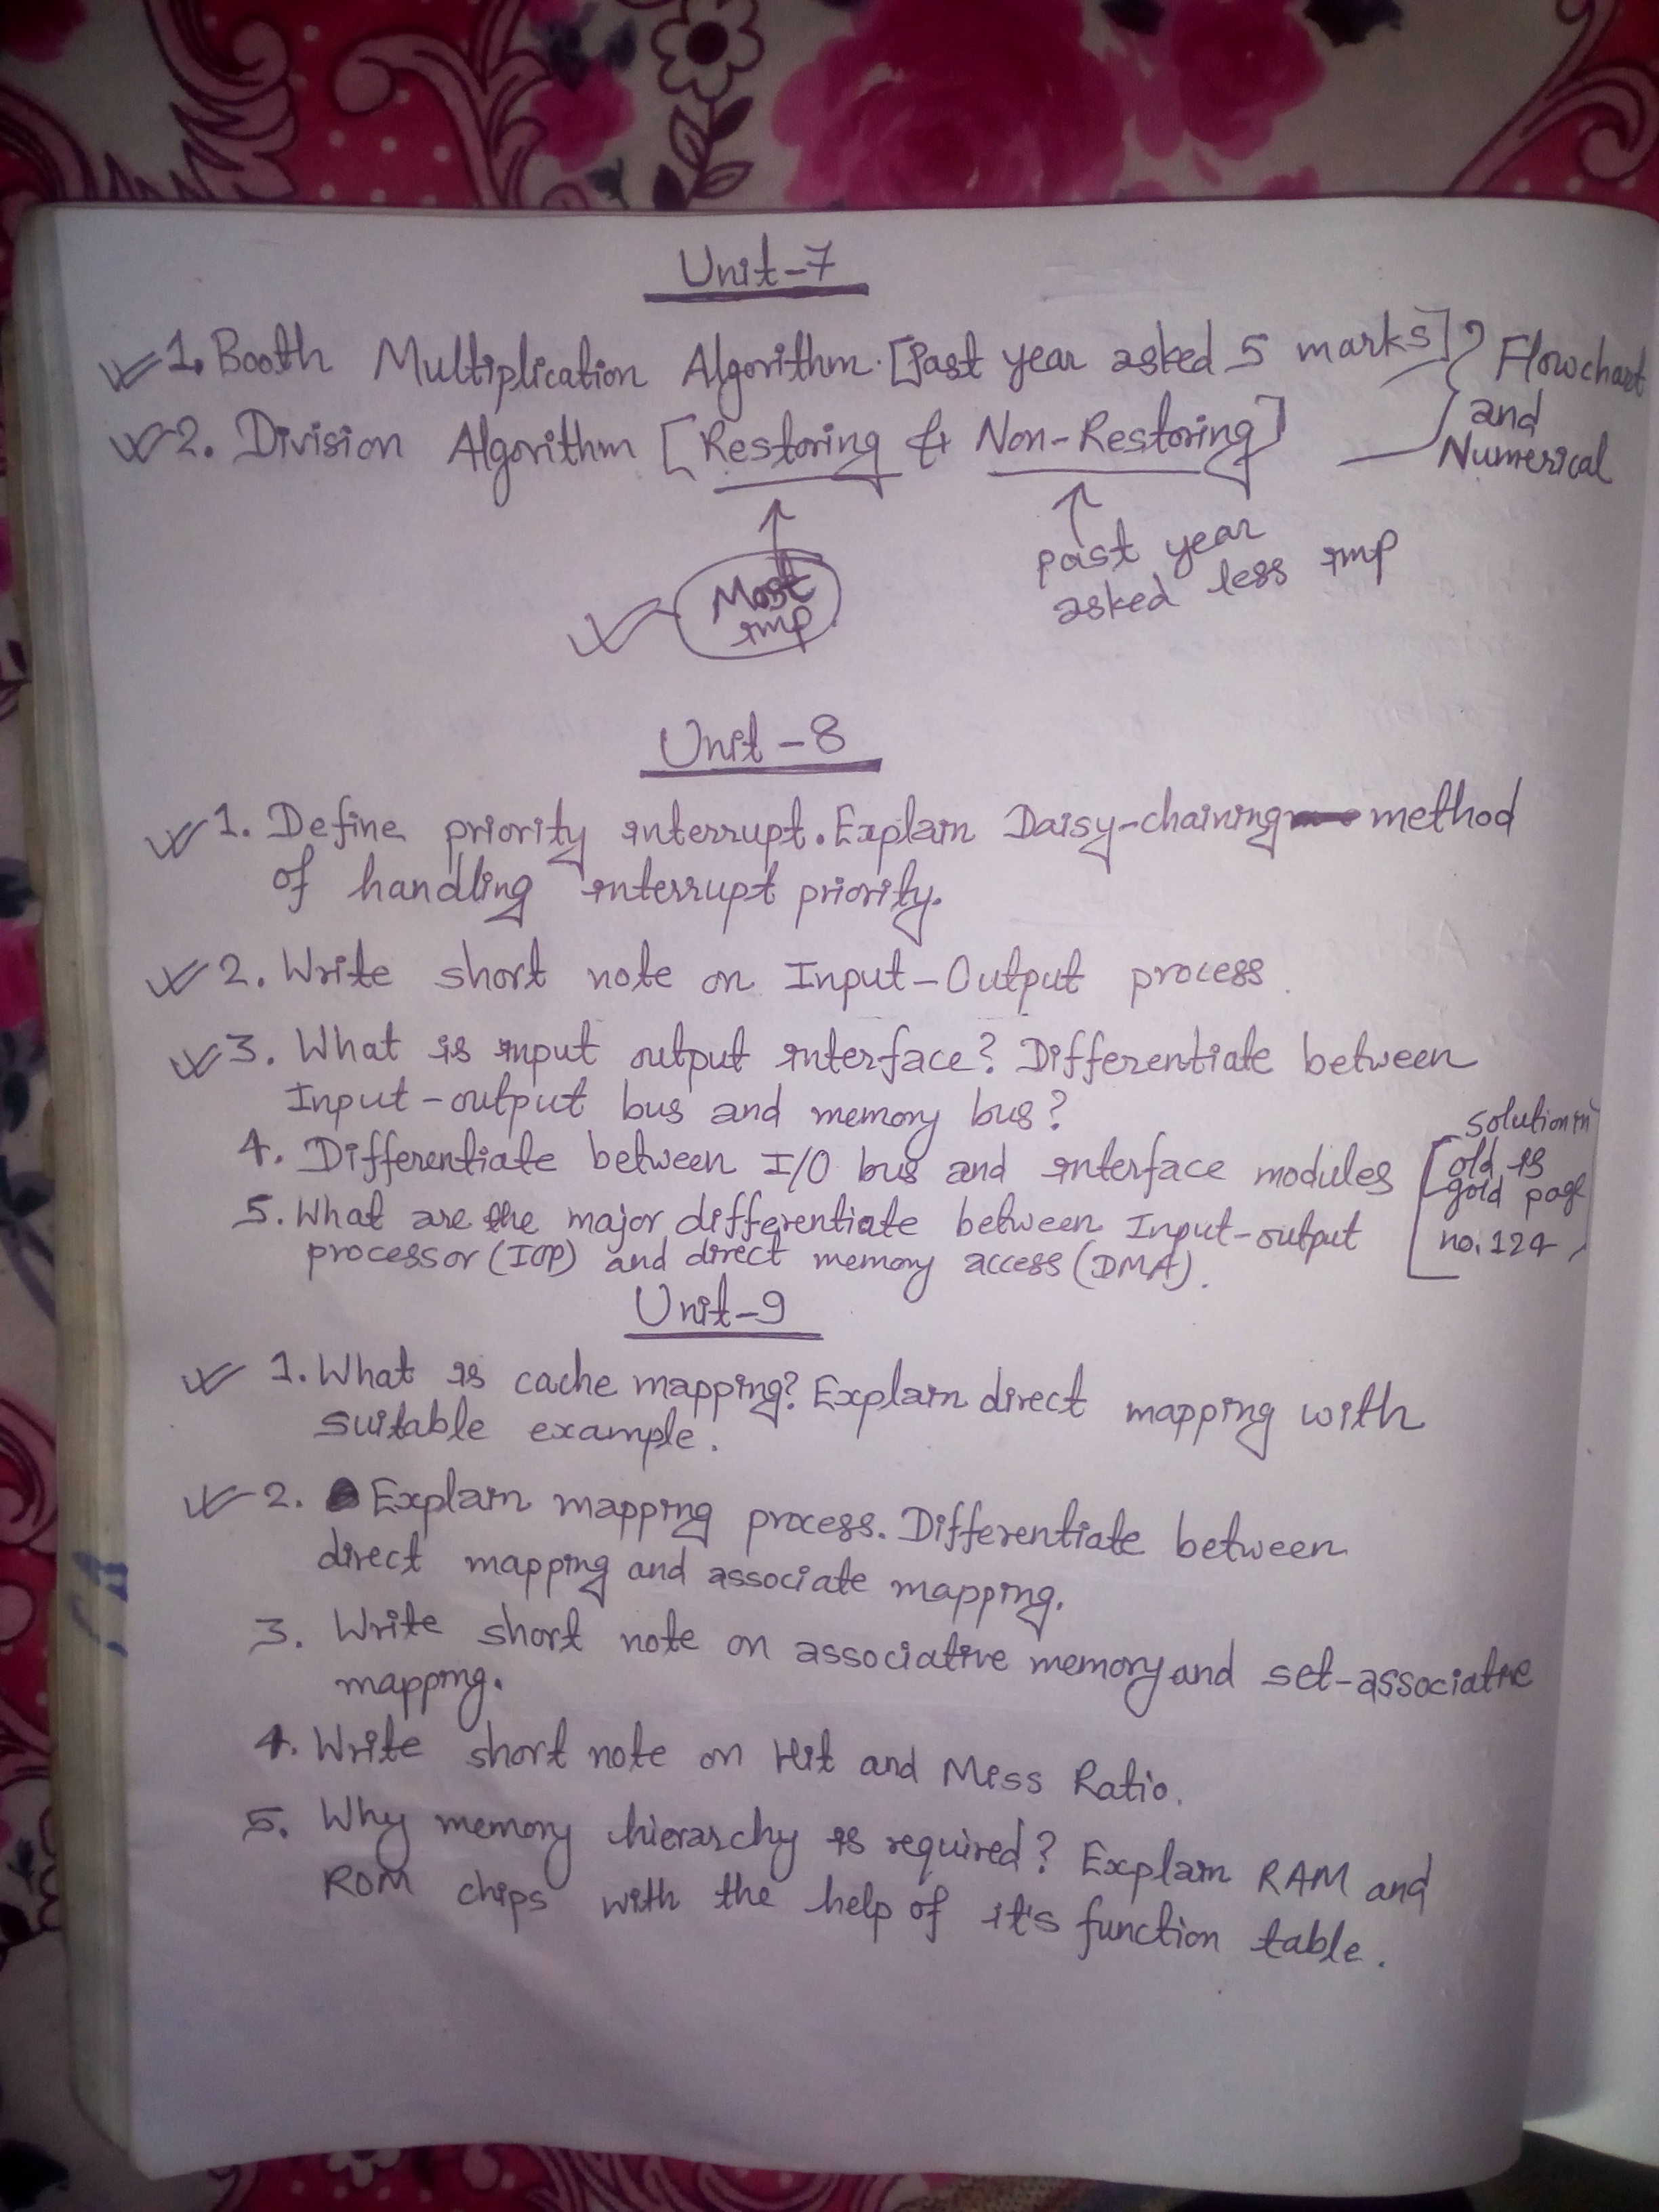 Unit-7
1. Booth Multiplication Algorithm. [Past year asked 5 marks] Flowchart
2. Division Algorithm [Restoring & Non-Restoring] and Numerical
Most imp
past year
asked less imp
Unit-8
1. Define priority interrupt. Explain Daisy-chaining method
of handling interrupt priority.
2. Write short note on Input-Output process.
3. What is input output interface? Differentiate between
Input-output bus and memory bus?
4. Differentiate between I/O bus and interface modules
5. What are the major differentiate between Input-output
processor (IOP) and direct memory access (DMA).
solution in
old is
gold page
no. 124
Unit-9
1. What is cache mapping? Explain direct mapping with
suitable example.
2. Explain mapping process. Differentiate between
direct mapping and associate mapping.
3. Write short note on associative memory and set-associative
mapping.
4. Write short note on Hit and Miss Ratio.
5. Why memory hierarchy is required? Explain RAM and
ROM chips with the help of it's function table.